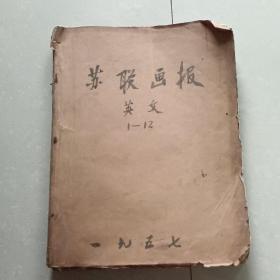 苏联画报
英文
1—12
一九五七